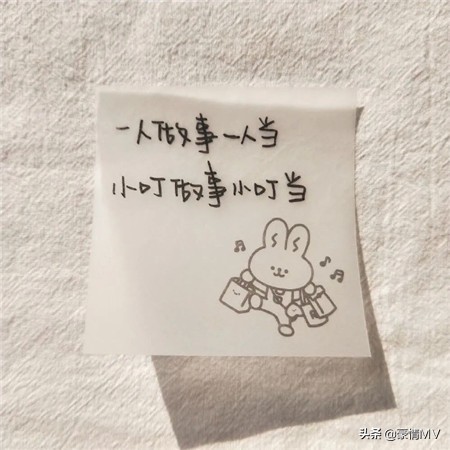 一人做事一人当
小叮做事小叮当
头条 @豪情MV